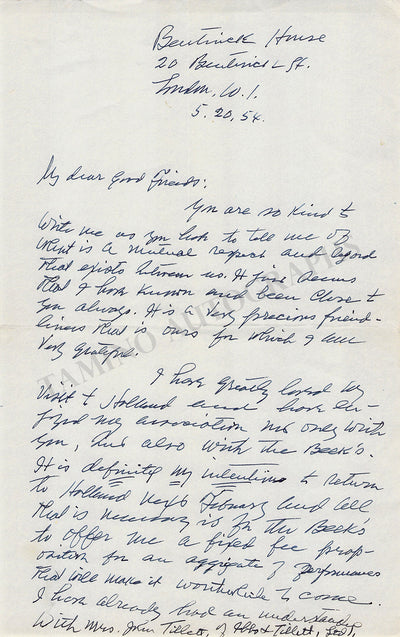 Bentinck House
20 Bentinck St.
London, W. 1.
5. 20, 54.
My dear Good Friends:
You are so kind to
write me as you have to tell me of
what is a mutual respect and regard
that exists between us. It just seems
that I have known and been close to
you always. It is a very precious friend-
liness that is ours for which I am
very grateful.
I have greatly loved my
visit to Holland and have en-
joyed my association not only with
you, but also with the Beek's.
It is definitely my intention to return
to Holland next February and all
that is necessary is for the Beek's
to offer me a fixed fee prop-
osition for an aggregate of performances
that will make it worthwhile to come.
I have already had an understanding
with Mrs. John Tillett, of Ibbs & Tillett, Ltd.,
TAMINO AUTOGRAPHS